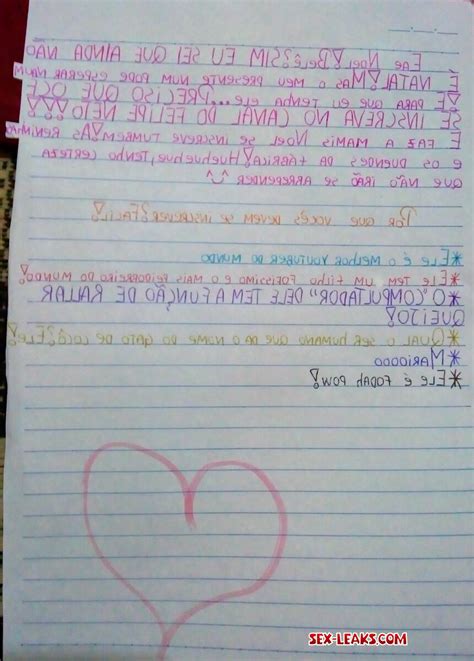 Eae Noel! Belê?? Sim eu sei que ainda não
é natal! Mas o meu presente num pode esperar naum
é para que eu tenha ele... Preciso que ocê
se inscreva no canal do Felipe Neto!!!!
E faz a mamis Noel se inscreve tumbem! As reninhas
e os duendes da fábrica! Huehuehue, tenho certeza
que não irão se arrepender
Por que vocês devem se inscrever? Fácil!
*Ele é o melhor youtuber do mundo
*Ele tem um filho fofíssimo e o mais peidorreiro do mundo!
*O "compultador" dele tem a função de ralar
queijo!
*Qual o ser humano que da o nome do gato de cocô? Ele!
*Marioooo
*Ele é fodah pow!
SEX-LEAKS.COM